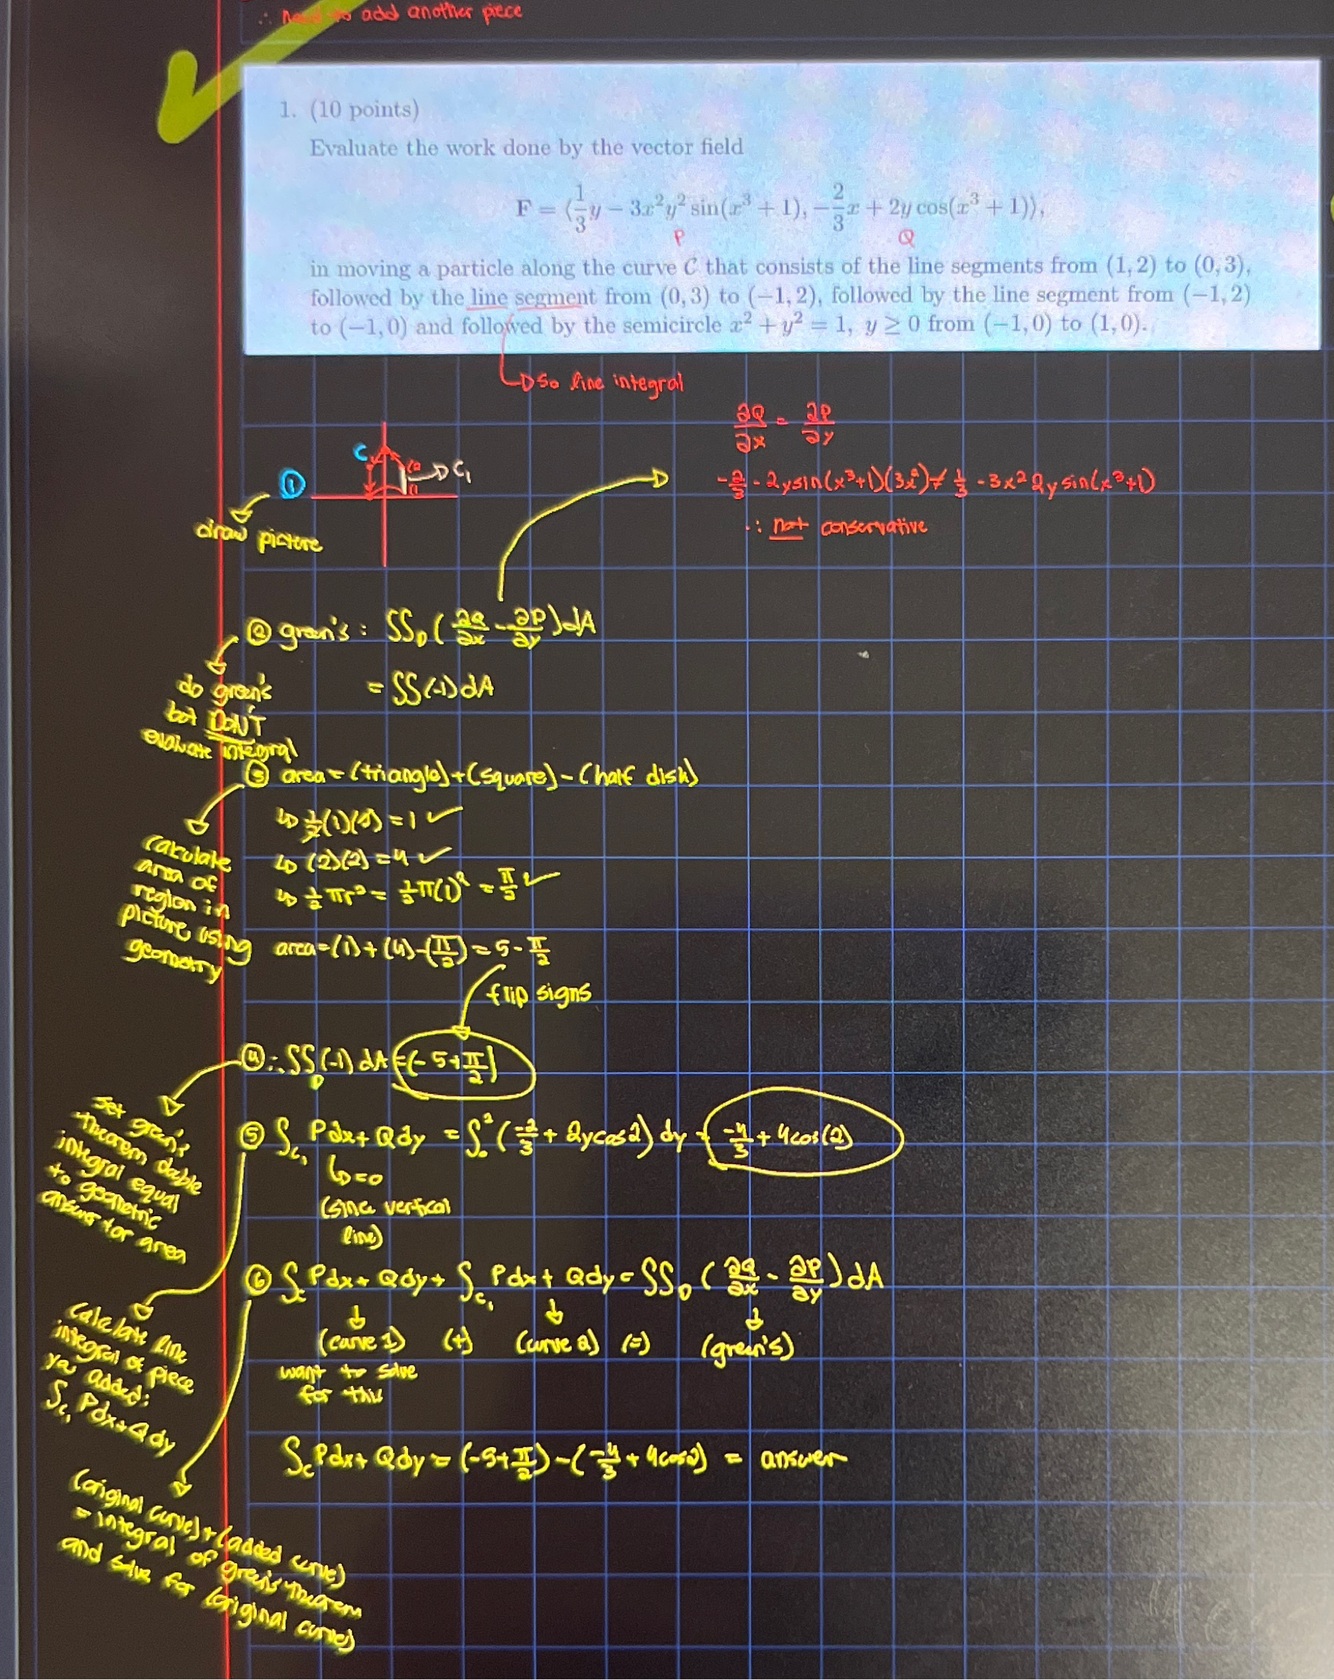 ∴ need to add another piece
1. (10 points)
Evaluate the work done by the vector field
F = ⟨1/3 y − 3x²y² sin(x³ + 1), −2/3 x + 2y cos(x³ + 1)⟩,
P Q
in moving a particle along the curve C that consists of the line segments from (1, 2) to (0, 3),
followed by the line segment from (0, 3) to (−1, 2), followed by the line segment from (−1, 2)
to (−1, 0) and followed by the semicircle x² + y² = 1, y ≥ 0 from (−1, 0) to (1, 0).
↳ so line integral
∂Q/∂x = ∂P/∂y
-2/3 - 2ysin(x³+1)(3x²) ≠ 1/3 - 3x²2ysin(x³+1)
∴ not conservative
①
C
→ C₁
draw picture
② green's: ∬_D (∂Q/∂x - ∂P/∂y) dA
= ∬(-1)dA
do green's
but DON'T
evaluate integral
③ area = (triangle) + (square) - (half disk)
↳ ½(1)(2) = 1 ✓
↳ (2)(2) = 4 ✓
↳ ½πr² = ½π(1)² = π/2 ✓
area = (1) + (4) - (π/2) = 5 - π/2
calculate
area of
region in
picture using
geometry
flip signs
④ ∴ ∬_D (-1) dA = (-5 + π/2)
set green's
theorem double
integral equal
to geometric
answer for area
⑤ ∫_C₁ Pdx + Qdy = ∫₀² (-2/3 + 2ycos2) dy = -4/3 + 4cos(2)
↳ = 0
(since vertical
line)
calculate line
integral of piece
you added:
∫_C₁ Pdx + Qdy
⑥ ∫_C Pdx + Qdy + ∫_C₁ Pdx + Qdy = ∬_D (∂Q/∂x - ∂P/∂y) dA
(curve 1) (+) (curve 2) (=) (green's)
want to solve
for this
∫_C Pdx + Qdy = (-5 + π/2) - (-4/3 + 4cos2) = answer
(original curve) + (added curve)
= integral of green's theorem
and solve for (original curve)